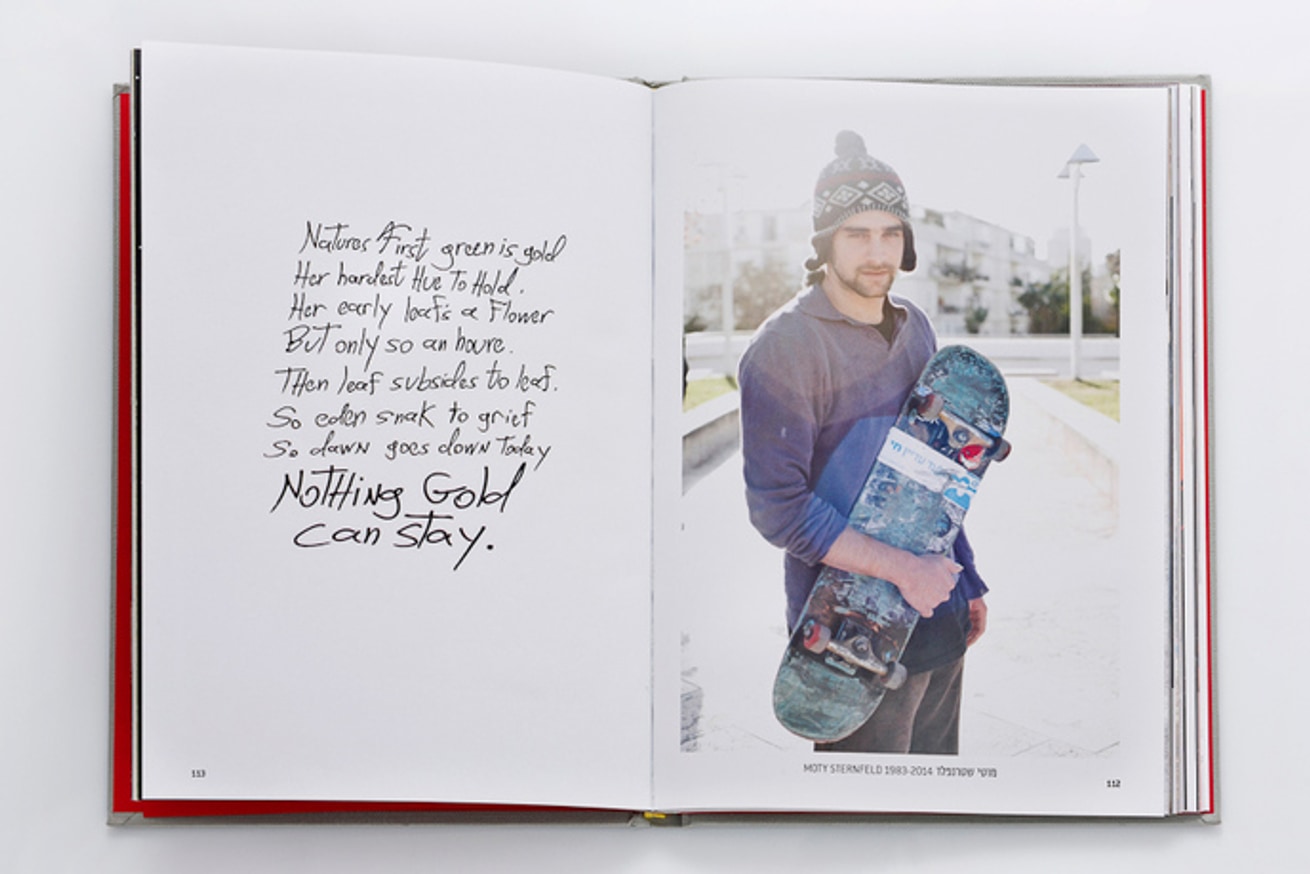 Natures First green is gold
Her hardest Hue To Hold.
Her early leafs a Flower
BuT only so an houre.
THen leaf subsides to leaf.
So eden snak to grief
So dawn goes down Today
NoTHing Gold
can sTay.
113
עדיין חי
MOTY STERNFELD 1983-2014 מוטי שטרנפלד
112